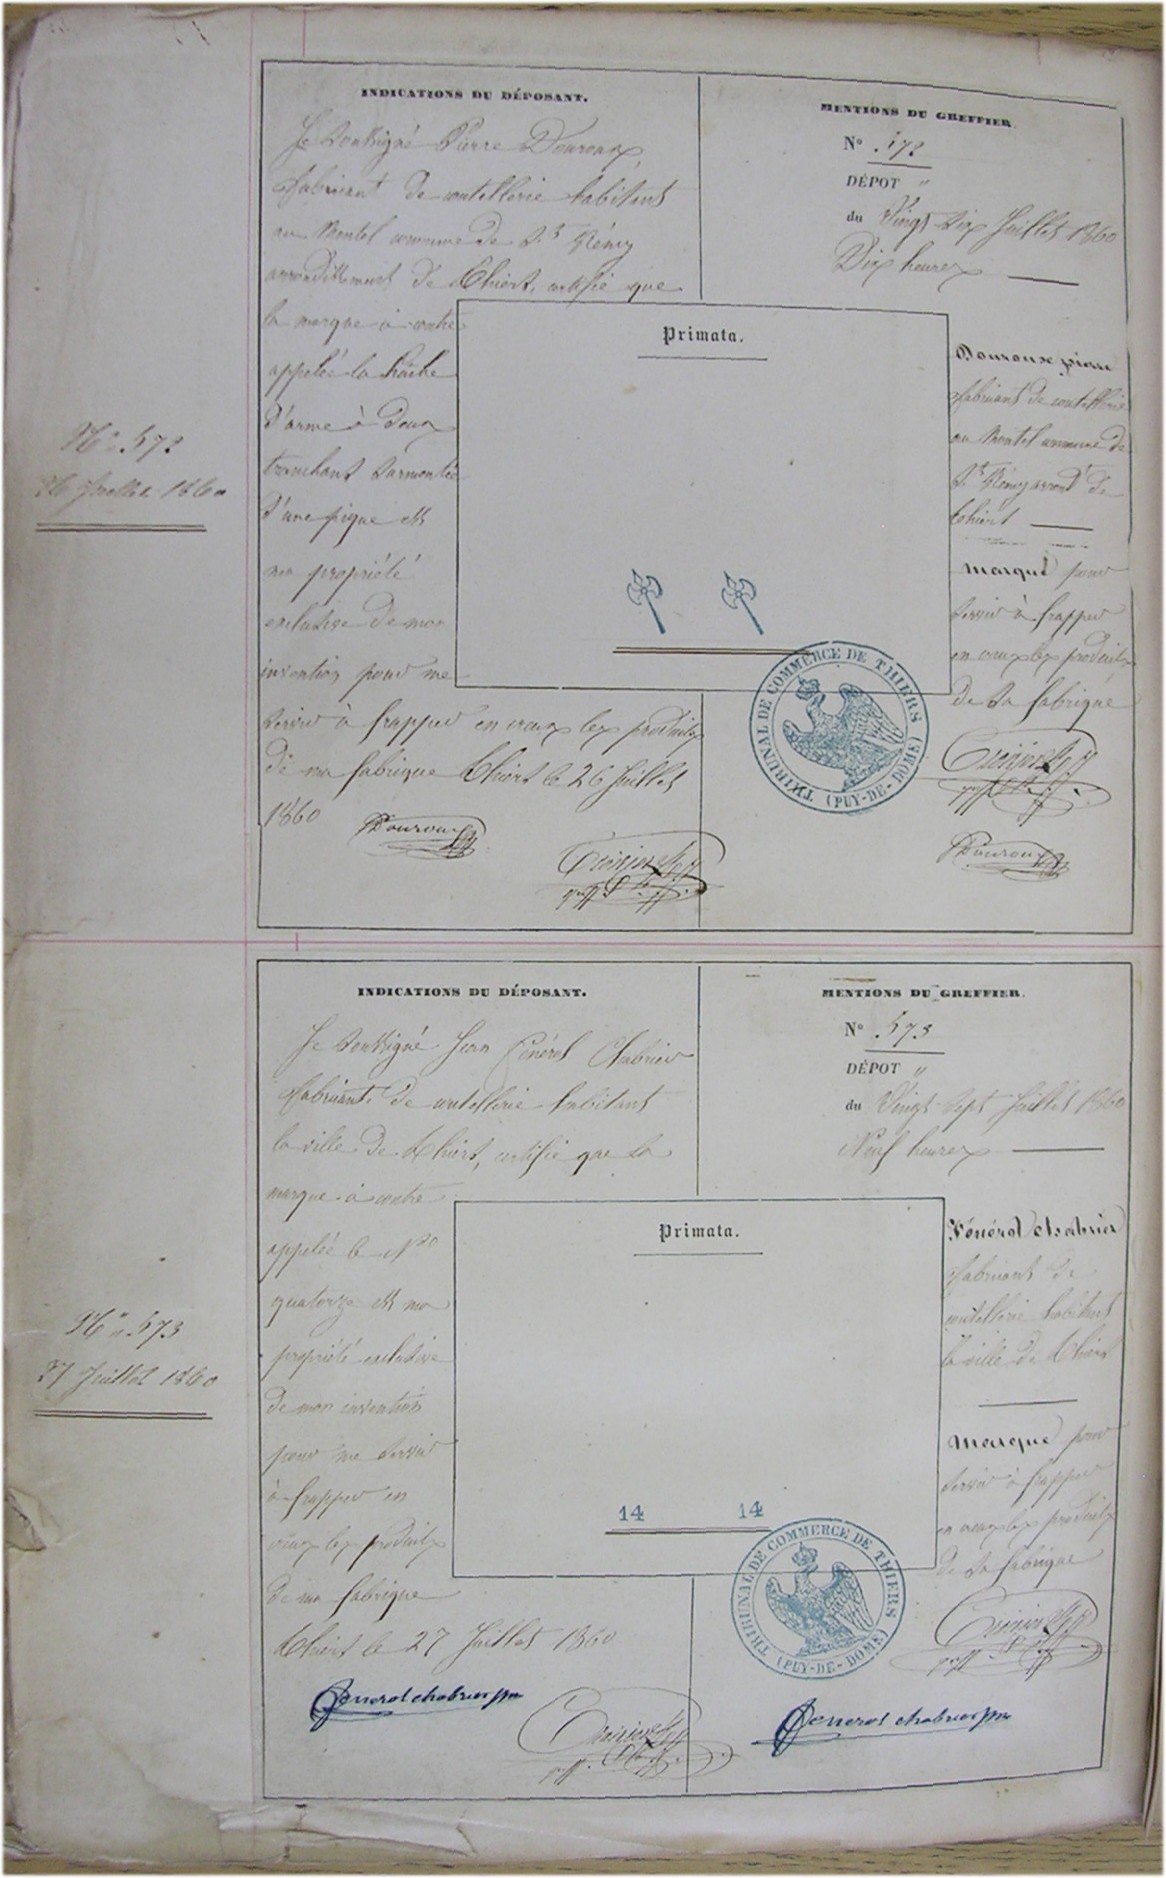 INDICATIONS DU DÉPOSANT.
Je soussigné Pierre Douroux,
fabricant de coutellerie habitant
au Montel commune de St Rémy
arrondissement de Thiers, certifie que
la marque ci-contre
appelée la hâche
d'arme à deux
tranchant surmontée
d'une pique est
ma propriété
exclusive de mon
invention pour me
servir à frapper en creux les produits
de ma fabrique Thiers le 26 Juillet
1860
PDouroux
MENTIONS DU GREFFIER.
No 572
DÉPOT "
du Vingt six Juillet 1860
Dix heures
Primata.
Douroux pierre
fabricant de coutellerie
au Montel commune de
St Rémy arrondt de
Thiers
Marque pour
servir à frapper
en creux les produits
de sa fabrique
TRIBUNAL DE COMMERCE DE THIERS
(PUY-DE-DOME)
PDouroux
No 572
26 Juillet 1860
INDICATIONS DU DÉPOSANT.
Je soussigné Jean Fénérol Chabrier
fabricant de coutellerie habitant
la ville de Thiers, certifie que la
marque ci-contre
appelée le No
quatorze est ma
propriété exclusive
de mon invention
pour me servir
à frapper en
creux les produits
de ma fabrique
Thiers le 27 Juillet 1860
fenerol chabrier
MENTIONS DU GREFFIER.
No 573
DÉPOT "
du Vingt sept Juillet 1860
Neuf heures
Primata.
14 14
Fénérol chabrier
fabricant de
coutellerie habitant
la ville de Thiers
Marque pour
servir à frapper
en creux les produits
de sa fabrique
TRIBUNAL DE COMMERCE DE THIERS
(PUY-DE-DOME)
fenerol chabrier
No 573
27 Juillet 1860